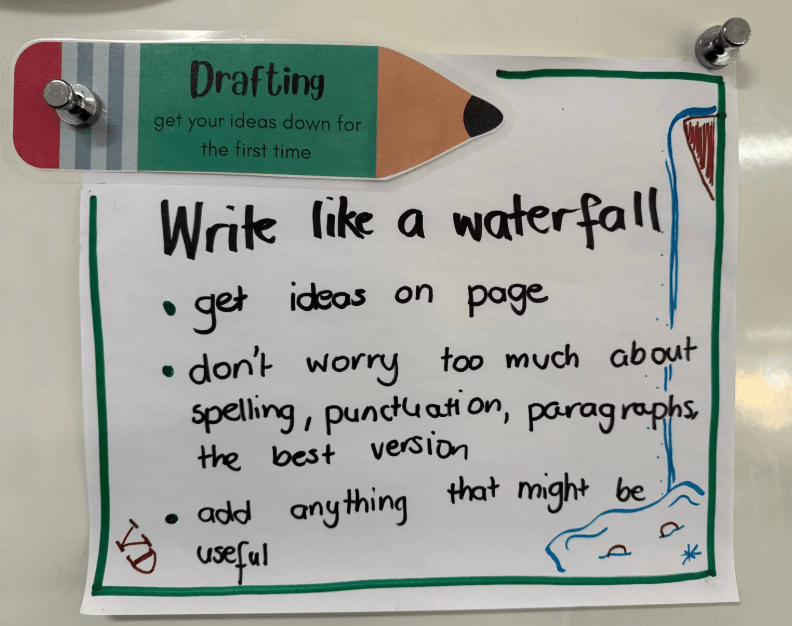 Drafting
get your ideas down for
the first time
Write like a waterfall
• get ideas on page
• don't worry too much about
spelling, punctuation, paragraphs,
the best version
• add anything that might be
useful